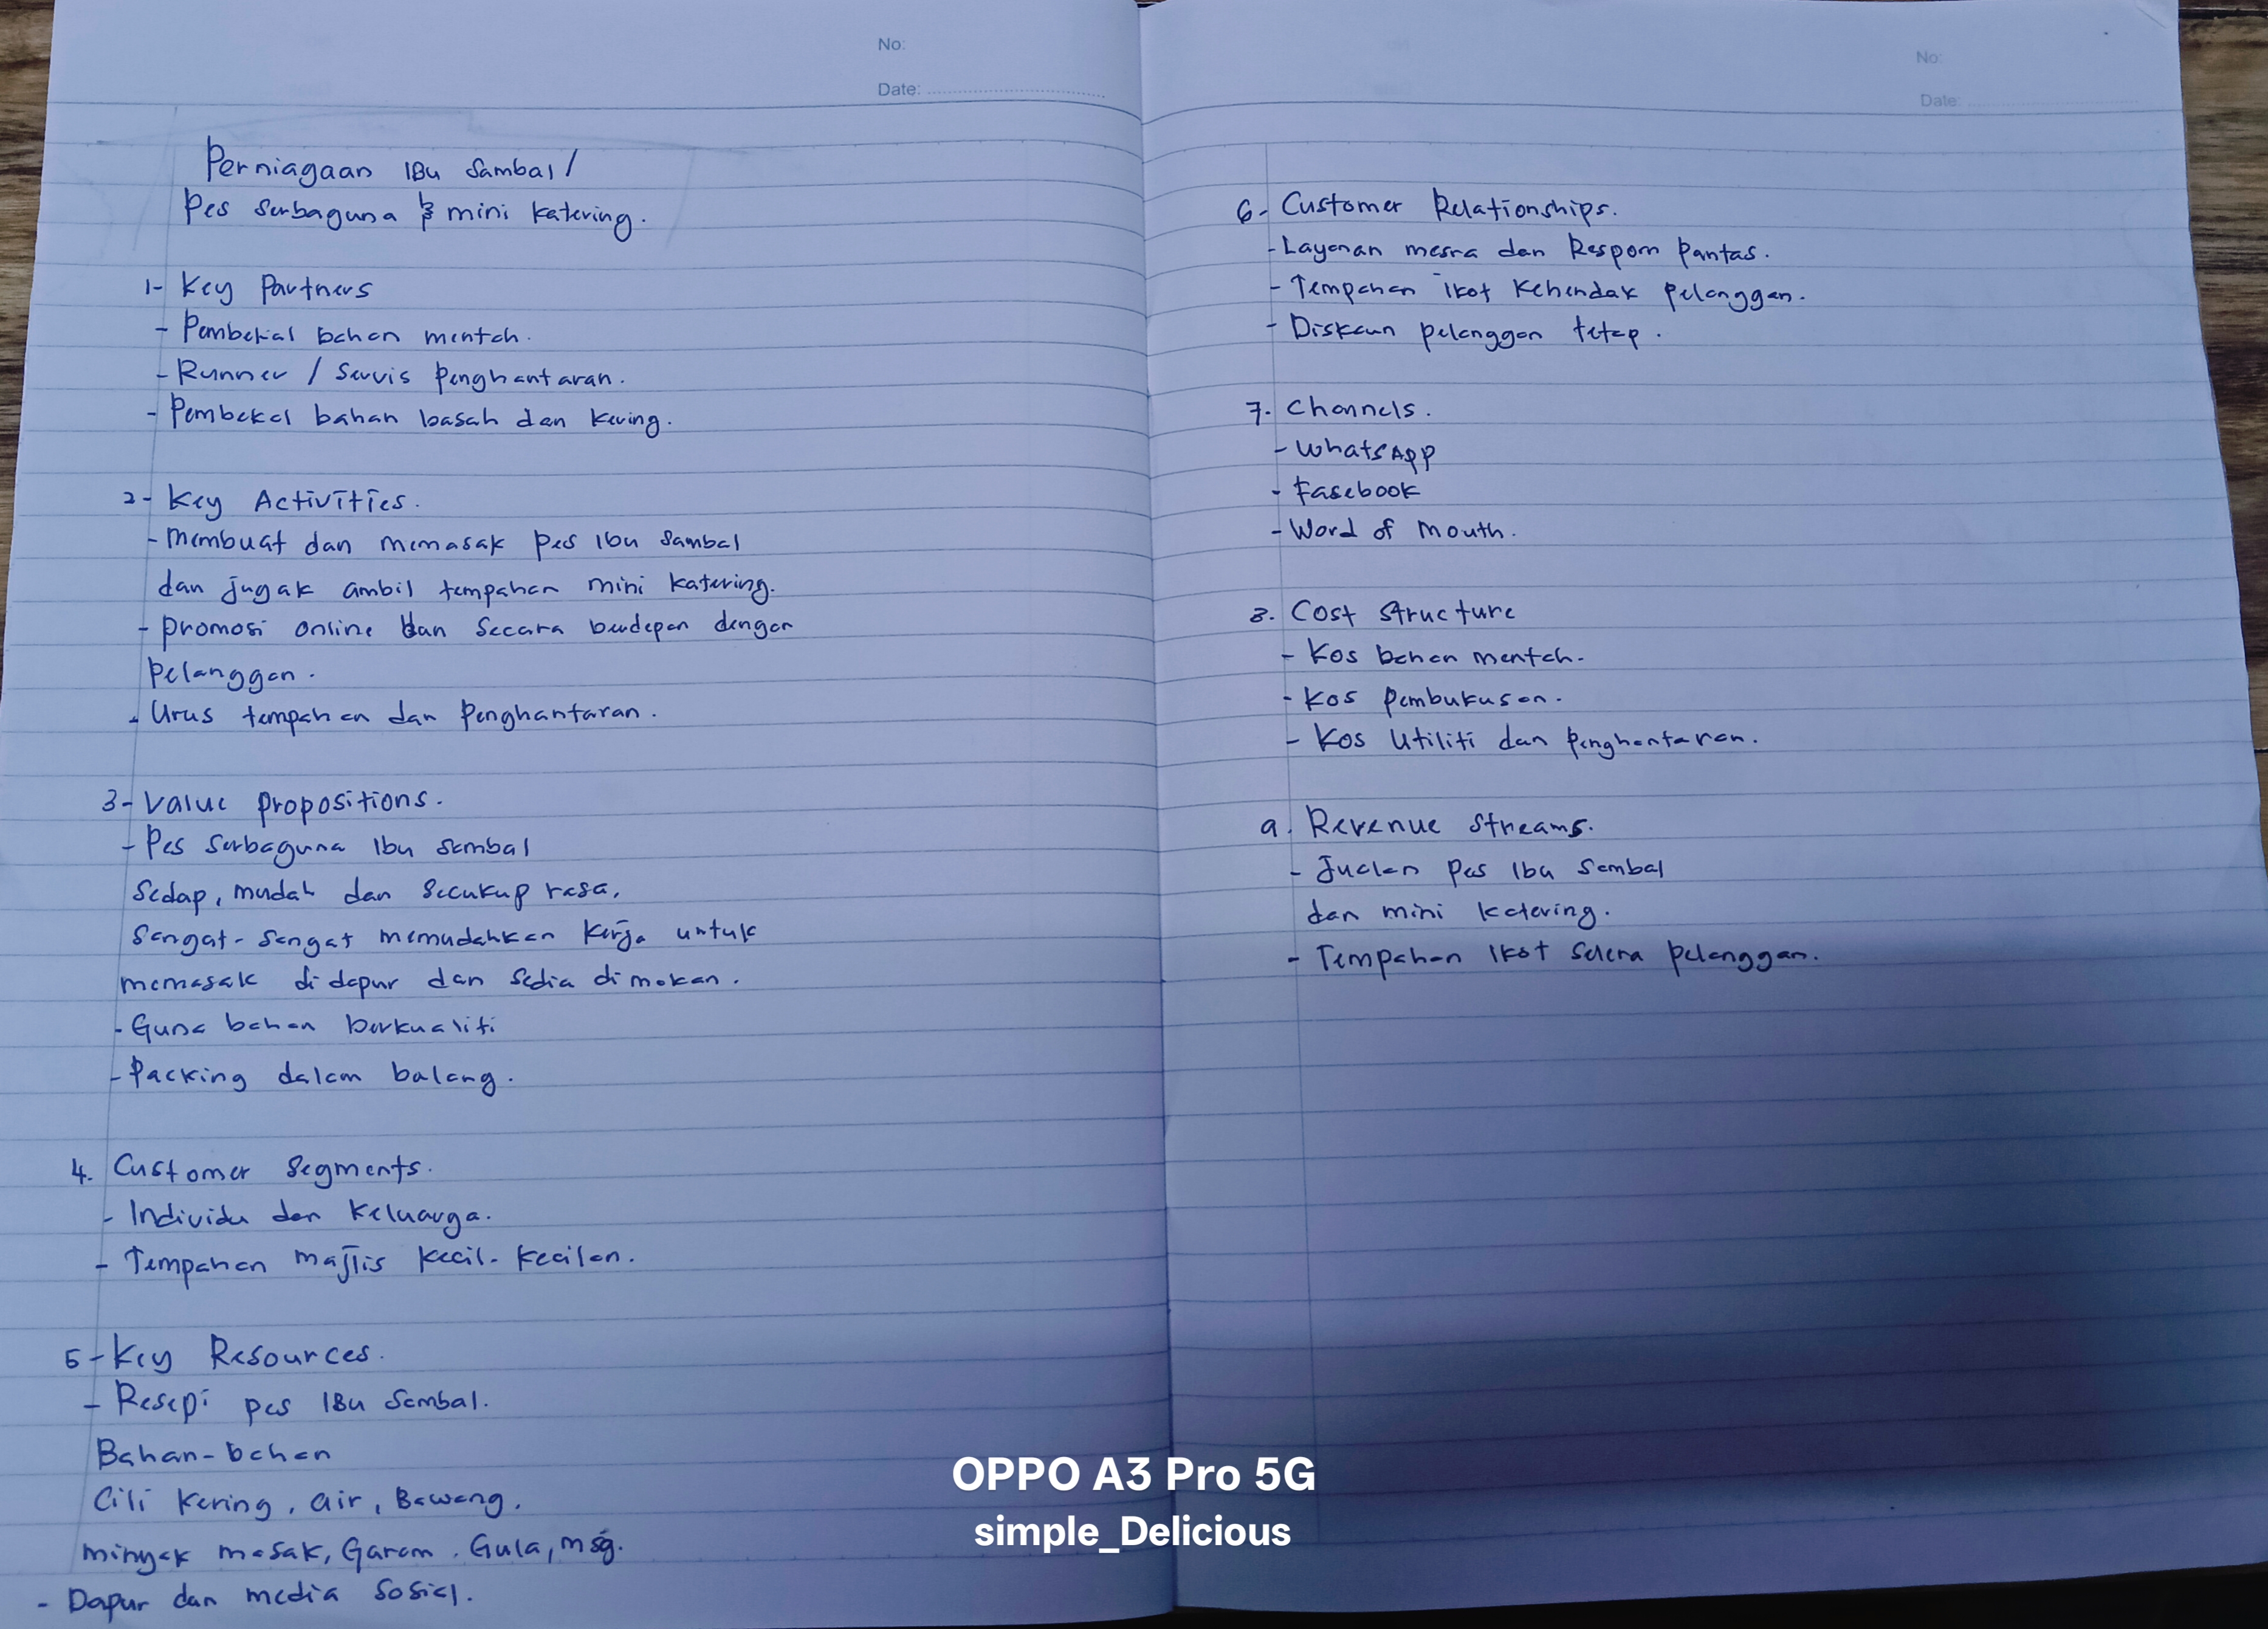 No:
Date:
Perniagaan IBu Sambal /
Pes Serbaguna & mini katering.
1- Key Partners
- Pembekal bahan mentah.
- Runner / Servis Penghantaran.
- Pembekal bahan basah dan kering.
2- Key Activities.
- Membuat dan memasak pes Ibu Sambal
dan jugak ambil tempahan mini katering.
- Promosi online dan Secara berdepan dengan
Pelanggan.
- Urus tempahan dan Penghantaran.
3- Value Propositions.
- Pes Serbaguna Ibu Sambal
Sedap, mudah dan Secukup rasa,
Sangat-Sangat memudahkan Kerja untuk
memasak di dapur dan Sedia di makan.
- Guna bahan berkualiti
- Packing dalam balang.
4. Customer Segments.
- Individu dan Keluarga.
- Tempahan majlis kecil-kecilan.
5- Key Resources.
- Resepi pes IBu Sambal.
Bahan-bahan
Cili Kering, air, Bawang,
minyak masak, Garam, Gula, msg.
- Dapur dan media Sosial.
No:
Date:
6- Customer Relationships.
- Layanan mesra dan Respom Pantas.
- Tempahan ikot Kehendak pelanggan.
- Diskaun pelanggan tetap.
7. Channels.
- WhatsApp
- Fasebook
- Word of Mouth.
8. Cost Structure
- Kos bahan mentah.
- Kos Pembukusan.
- Kos Utiliti dan Penghantaran.
9. Revenue Streams.
- Jualan Pes Ibu Sambal
dan mini Katering.
- Tempahan Ikot Selera Pelanggan.
OPPO A3 Pro 5G
simple_Delicious